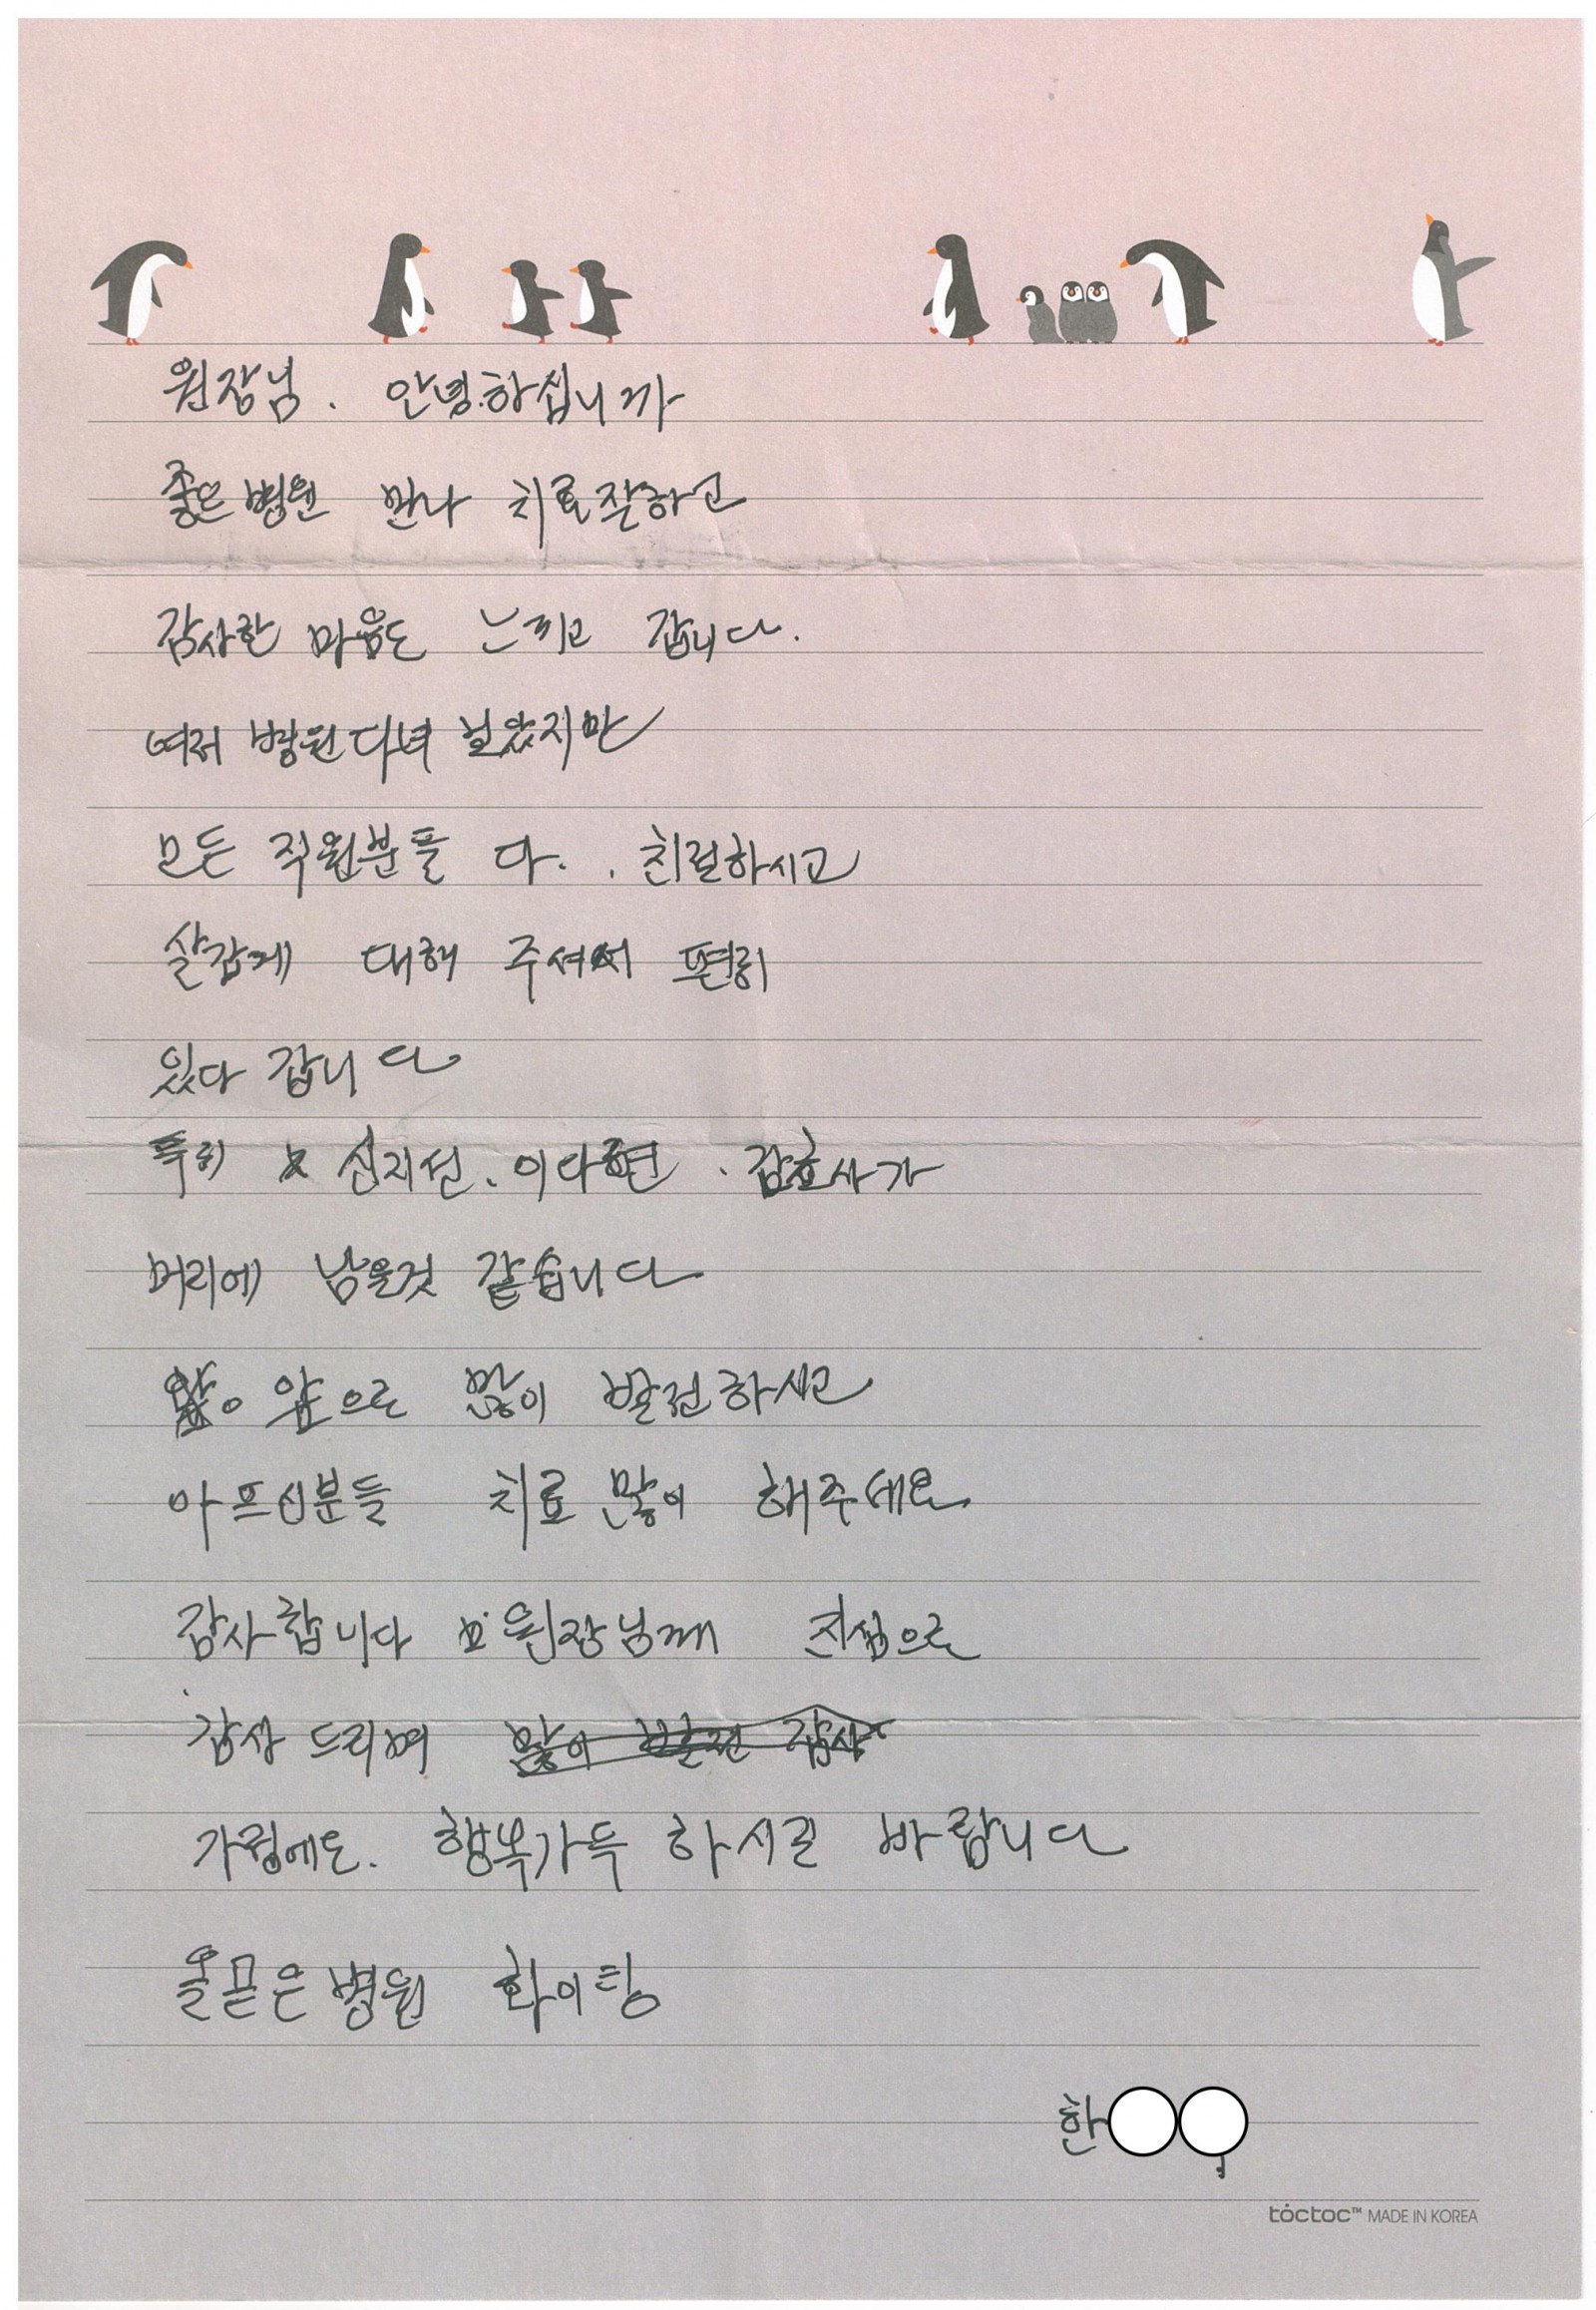 원장님. 안녕하십니까
좋은병원 만나 치료잘하고
감사한 마음도 느끼고 갑니다.
여러 병원다녀 보았지만
모든 직원분들 다. . 친절하시고
살갑게 대해 주셔서 편히
있다 갑니다
특히 신지선. 이다현 . 간호사가
머리에 남을것 같습니다
앞으로 많이 발전하시고
아프신분들 치료 많이 해주세요
감사합니다 원장님께 진심으로
감사 드리며
가정에도. 행복가득 하시길 바랍니다
올곧은병원 화이팅
한
tóctoc™ MADE IN KOREA